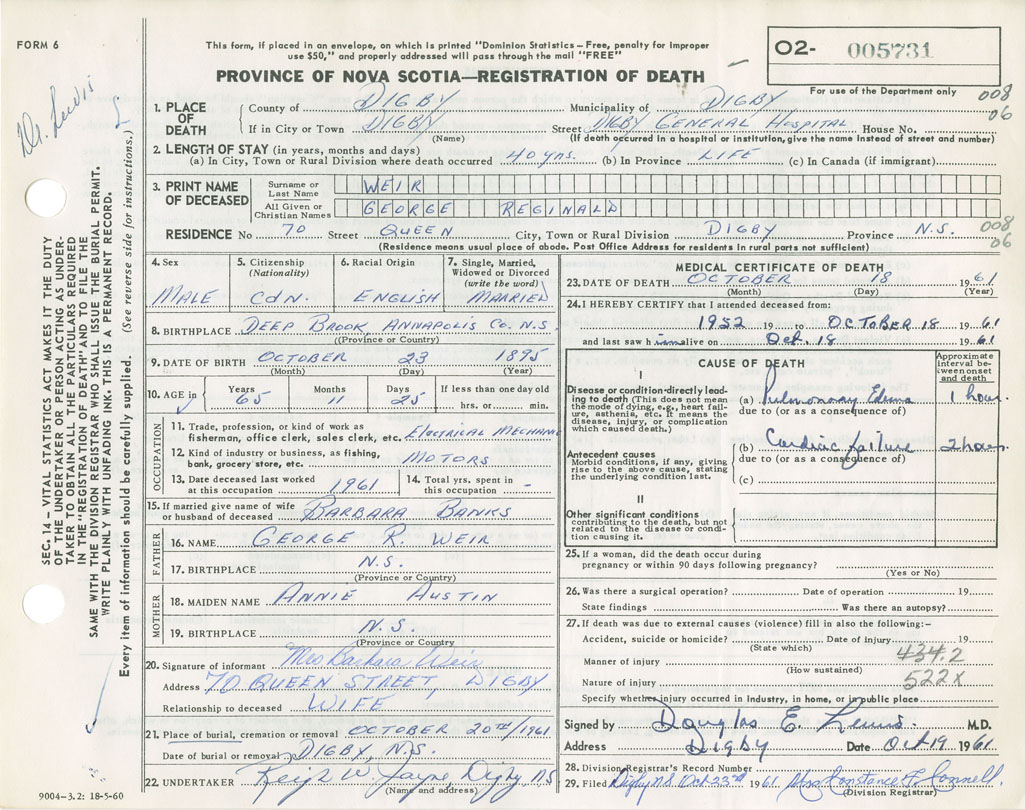 FORM 6
This form, if placed in an envelope, on which is printed "Dominion Statistics – Free, penalty for improper
use $50," and properly addressed will pass through the mail "FREE"
PROVINCE OF NOVA SCOTIA—REGISTRATION OF DEATH
O2- 005731
For use of the Department only
008
06
Dr. Lewis
SEC. 14 – VITAL STATISTICS ACT MAKES IT THE DUTY
OF THE UNDERTAKER OR PERSON ACTING AS UNDER-
TAKER TO OBTAIN ALL THE PARTICULARS REQUIRED
IN THE "REGISTRATION OF DEATH" AND TO FILE THE
SAME WITH THE DIVISION REGISTRAR WHO SHALL ISSUE THE BURIAL PERMIT.
WRITE PLAINLY WITH UNFADING INK. THIS IS A PERMANENT RECORD.
Every item of information should be carefully supplied. (See reverse side for instructions.)
1. PLACE OF DEATH
County of DIGBY Municipality of DIGBY
If in City or Town DIGBY Street DIGBY GENERAL HOSPITAL House No.
(Name) (If death occurred in a hospital or institution, give the name instead of street and number)
2. LENGTH OF STAY (in years, months and days)
(a) In City, Town or Rural Division where death occurred 40 yrs. (b) In Province LIFE (c) In Canada (if immigrant)
3. PRINT NAME OF DECEASED
Surname or Last Name WEIR
All Given or Christian Names GEORGE REGINALD
RESIDENCE No 70 Street QUEEN City, Town or Rural Division DIGBY Province N.S.
008
06
(Residence means usual place of abode. Post Office Address for residents in rural parts not sufficient)
4. Sex 5. Citizenship (Nationality) 6. Racial Origin 7. Single, Married, Widowed or Divorced (write the word)
MALE CDN. ENGLISH MARRIED
8. BIRTHPLACE DEEP BROOK, ANNAPOLIS CO. N.S.
(Province or Country)
9. DATE OF BIRTH OCTOBER 23 1895
(Month) (Day) (Year)
10. AGE in Years 65 Months 11 Days 25 If less than one day old hrs. or min.
OCCUPATION
11. Trade, profession, or kind of work as
fisherman, office clerk, sales clerk, etc. ELECTRICAL MECHANIC
12. Kind of industry or business, as fishing,
bank, grocery store, etc. MOTORS
13. Date deceased last worked at this occupation 1961 14. Total yrs. spent in this occupation -
15. If married give name of wife
or husband of deceased BARBARA BANKS
FATHER
16. NAME GEORGE R. WEIR
17. BIRTHPLACE N.S.
(Province or Country)
MOTHER
18. MAIDEN NAME ANNIE AUSTIN
19. BIRTHPLACE N.S.
(Province or Country)
20. Signature of informant Mrs Barbara Weir
Address 70 QUEEN STREET, DIGBY
Relationship to deceased WIFE
21. Place of burial, cremation or removal OCTOBER 20TH/1961
Date of burial or removal DIGBY, N.S.
22. UNDERTAKER W. Jayne Digby NS
(Name and address)
9004-3.2: 18-5-60
MEDICAL CERTIFICATE OF DEATH
23. DATE OF DEATH OCTOBER 18 1961
(Month) (Day) (Year)
24. I HEREBY CERTIFY that I attended deceased from:
1952 19 to OCTOBER 18 1961
and last saw him alive on Oct. 18 1961
CAUSE OF DEATH
Approximate interval between onset and death
I
Disease or condition directly lead-
ing to death (This does not mean
the mode of dying, e.g., heart fail-
ure, asthenia, etc. It means the
disease, injury, or complication
which caused death.)
(a) Pulmonary Edema 1 hour
due to (or as a consequence of)
(b) Cardiac failure 2 hours
due to (or as a consequence of)
Antecedent causes
Morbid conditions, if any, giving
rise to the above cause, stating
the underlying condition last.
(c)
II
Other significant conditions
contributing to the death, but not
related to the disease or condi-
tion causing it.
25. If a woman, did the death occur during
pregnancy or within 90 days following pregnancy?
(Yes or No)
26. Was there a surgical operation? Date of operation 19
State findings Was there an autopsy?
27. If death was due to external causes (violence) fill in also the following:–
Accident, suicide or homicide? Date of injury 19
(State which)
434.2
Manner of injury
(How sustained)
522x
Nature of injury
Specify whether injury occurred in industry, in home, or in public place
Signed by Douglas E. Lewis M.D.
Address DIGBY Date Oct 19 1961
28. Division Registrar's Record Number
29. Filed Digby NS Oct 23rd 1961 Mrs Constance F Connell
(Division Registrar)